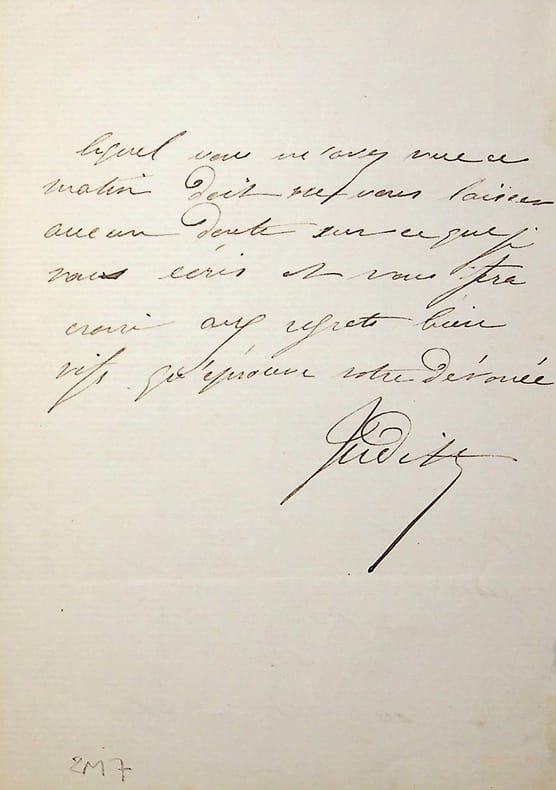 lequel vous m'avez vue ce
matin doit ne vous laisser
aucun doute sur ce que je
vous écris et vous fera
croire aux regrets bien
vifs qu'éprouve votre dévouée
Judith
2M7